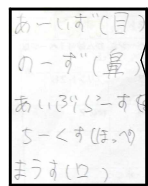 あーいず(目)
のーず(鼻)
あい(まゆ)らーす(
ちーくす(ほっぺ)
まうす(口)